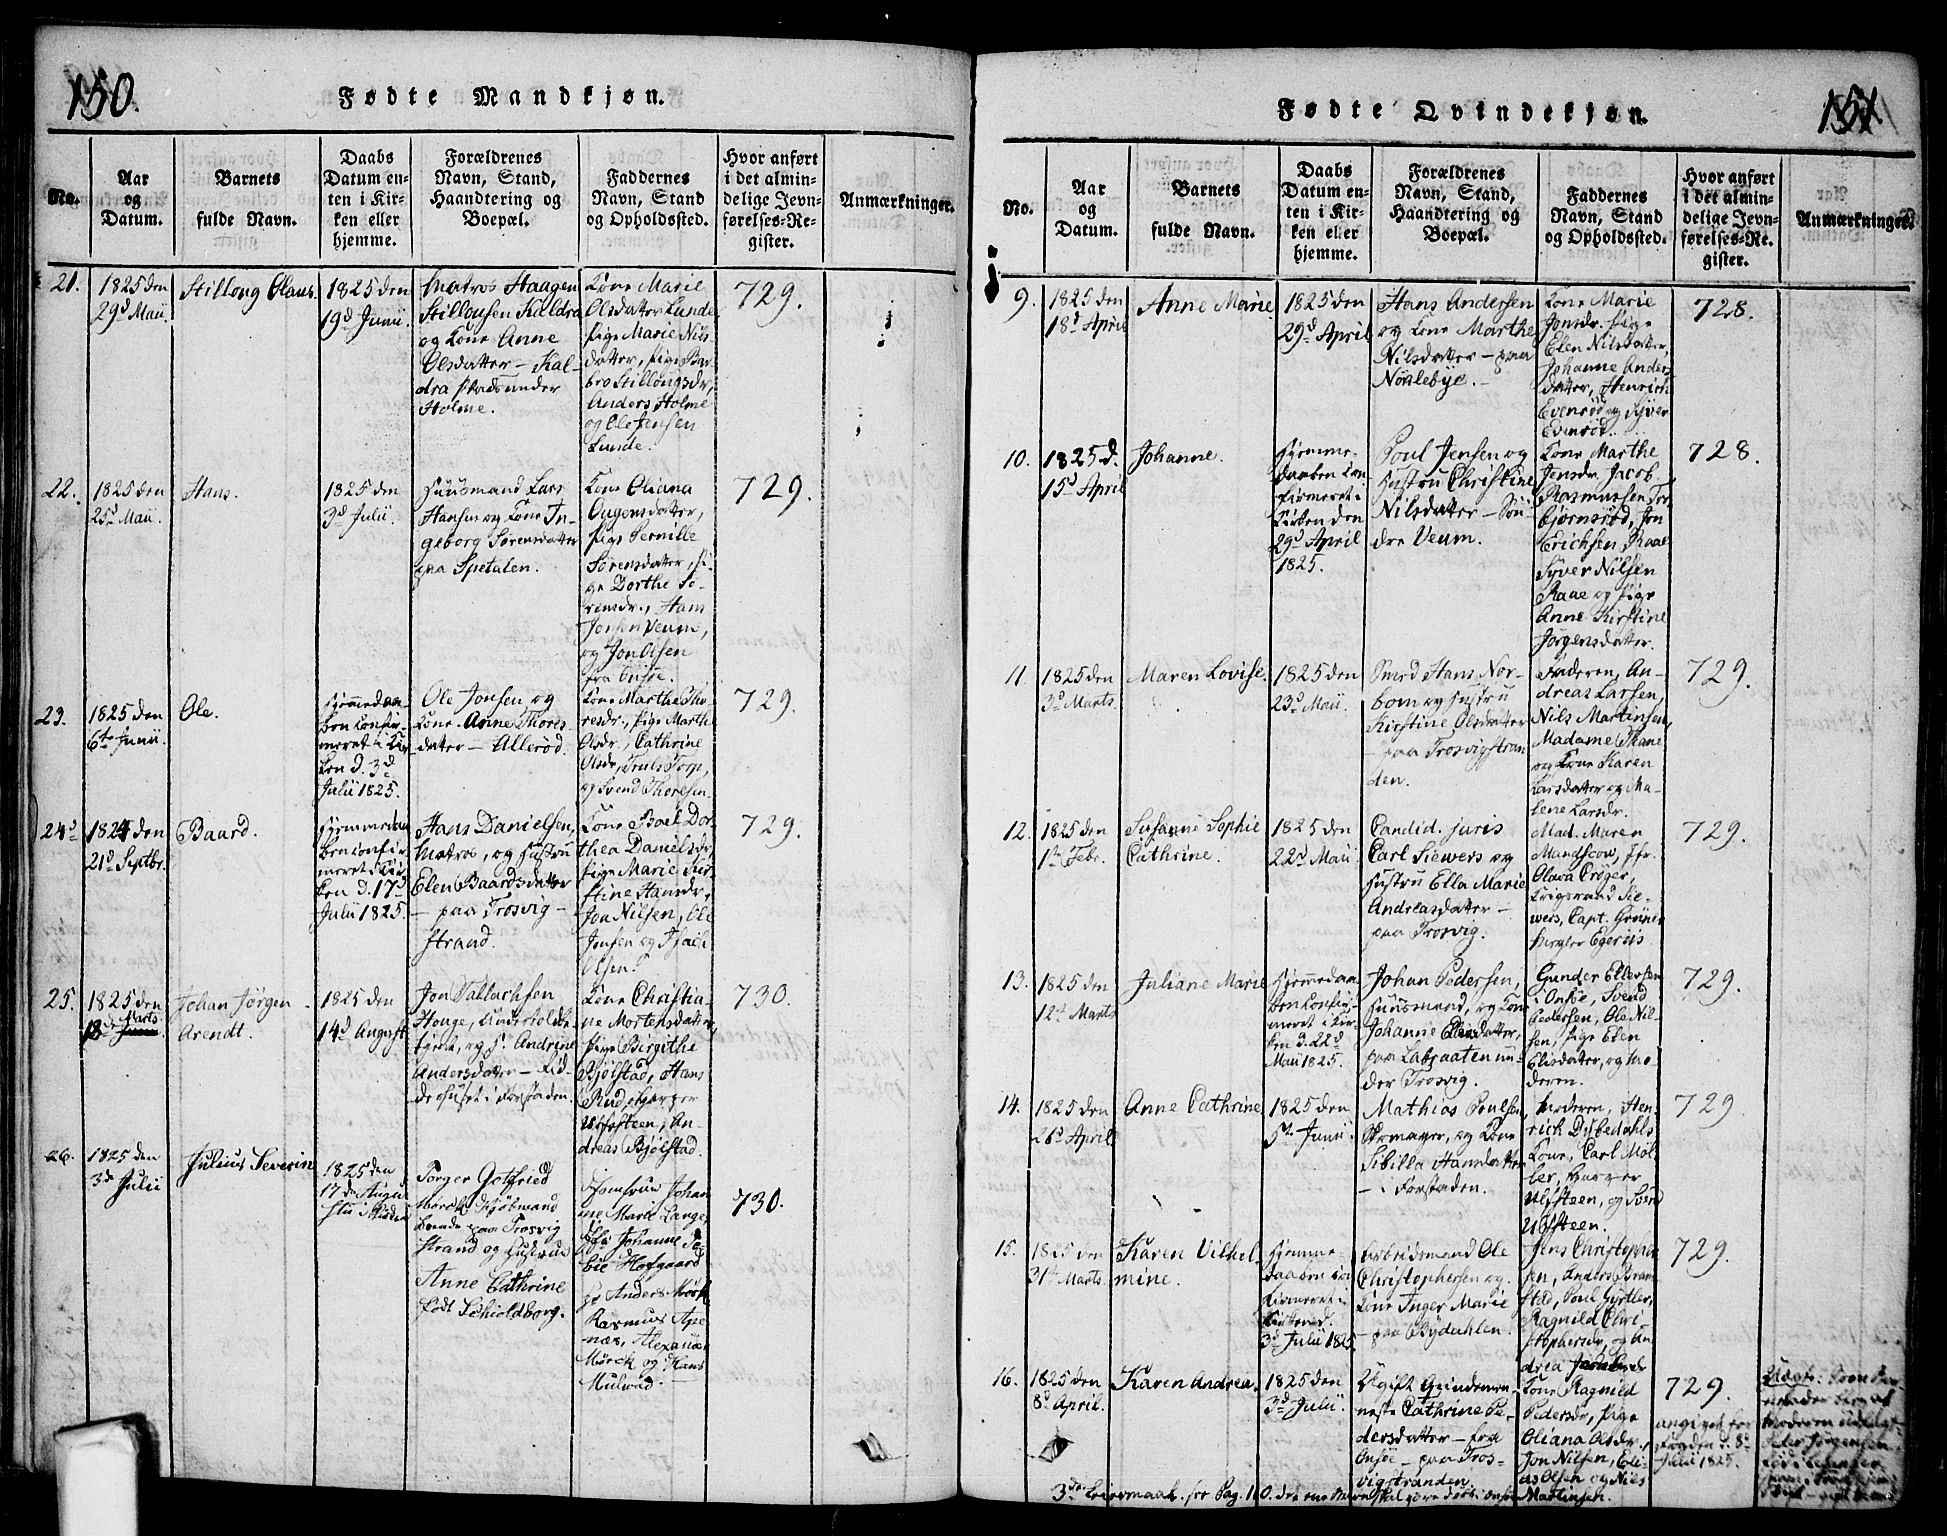 150.
Fødte Mandkjøn.
No.
Aar
og
Datum.
Barnets
fulde Navn.
Daabs
Datum en-
ten i Kir-
ken eller
hjemme.
Forældrenes
Navn, Stand,
Haandtering og
Boepæl.
Faddernes
Navn, Stand
og Opholdssted.
Hvor anført
i det almin-
delige Jevn-
førelses-Re-
gister.
Anmærkninger.
21.
1825 den
29d Maii.
Stillong Olaus.
1825 den
19d Junii.
Matros Haagen
Stillonsen Kaldra
og Kone Anne
Olsdatter – Kal-
dra Plads under
Holme.
Kone Marie
Olsdatter Lunde,
Pige Marie Nils-
datter, Pige Bar-
bro Stillongsdr,
Anders Holme
og Ole Jensen
Lunde.
729.
22.
1825 den
25d Maii.
Hans.
1825 den
3d Julii.
Huusmand Lars
Hansen og Kone In-
geborg Sørensdatter
paa Spetalen.
Kone Oliana
Ougensdatter,
Pige Pernille
Sørensdatter, Pi-
ge Dorthe Sø-
rensdr., Hans
Jonsen Veum,
og Jon Olsen
fra Onsøe.
729.
23.
1825 den
6te Junii.
Ole.
Hjemmedaa-
ben Confir-
meret i Kir-
ken d. 3d
Julii 1825.
Ole Jonsen og
Kone Anne Thores-
datter – Allerød.
Kone Marthe Tho-
resdr., Pige Marthe
Olsdr., Cathrine
Olsdr, Truls Torp,
og Svend Thoresen.
729.
24d
1824 den
21d Septbr.
Baard.
Hjemmedaa-
ben confir-
meret i Kir-
ken d. 17d
Julii 1825.
Hans Danielsen,
Matros, og Hustru
Elen Baardsdatter
– paa Trosvig –
strand.
Kone Boel Dor-
thea Danielsdr,
Pige Marie Kir-
stine Hansdr,
Jon Nilsen, Ole
Jonsen og
Olsen.
729.
25.
1825 den
18de Marts
Johan Jørgen
Arendt.
1825 den
14d August
Jon Tallachsen
Houge,
og H. Andrine
Andersdatter –
i Forstaden.
Kone Christia-
ne Mortensdatter,
Pige Birgithe
Bjølstad, Hans
Rud, Skipper
Ulfsteen, An-
dreas Bjølstad.
730.
26.
1825 den
3d Julii
Julius Severin
1825 den
17de Augu-
sti i Kirken
Torger Gotfried
Mørch Kjøbmand
boende paa Trosvig
Strand og Hustrue
Anne Cathrine
født Schioldborg.
Jomfrue Johan-
ne Marie Lange,
Johanne So-
bie Hofgaard
Anders Mørch
Rasmus Ape-
næs, Alexander
Mørch og Hans
Mulvad.
730.
151
Fødte Qvindekjøn.
No.
Aar
og
Datum.
Barnets
fulde Navn.
Daabs
Datum en-
ten i Kir-
ken eller
hjemme.
Forældrenes
Navn, Stand,
Haandtering og
Boepæl.
Faddernes
Navn, Stand
og Opholdssted.
Hvor anført
i det almin-
delige Jevn-
førelses-Re-
gister.
Anmærkninger.
9.
1825 den
18d April
Anne Marie
1825 den
29d April
Hans Andersen
og Kone Marthe
Nilsdatter – paa
Nørlebye. –
Kone Marie
Jonsdr. Pige
Elen Nilsdatter,
Johanne Anders-
datter, Henrich
Evensrød og Syver
Evensrød.
728.
10.
1825 d.
15d April
Johanne.
Hjemme-
daaben Con-
firmeret i
Kirken den
29d April
1825.
Poul Jensen og
Hustru Christine
Nilsdatter – Søn-
dre Veum.
Kone Marthe
Jensdr, Jacob
Rasmussen Tor-
bjørnsrød, Jon
Erichsen, Raae
Syver Nilsen
Raae og Pige
Anne Kirstine
Jørgensdatter.
728.
11.
1825 den
3d Marts.
Maren Lovise.
1825 den
23d Maii.
Smed Hans Nor-
bom og Hustru
Kirstine Olsdatter
– paa Trosvigstran-
den.
Faderen, An-
dreas Larsen,
Nils Martinsen,
Madame Thane
og Kone Karen
Larsdatter og Ma-
lene Larsdr.
729.
12.
1825 den
1te Febr.
Susanne Sophie
Cathrine.
1825 den
22d Maii
Candid. juris
Carl Siewers og
Hustru Ella Marie
Andreasdatter –
paa Trosvig.
Mad. Maren
Mandscow, Jfr.
Olava Crøger,
Krigsraad Sie-
wers, Capt. Grøner
Egeriis.
729.
13.
1825 den
12te Marts
Juliane Marie
Hjemmedaa-
ben Confir-
meret i Kir-
ken d. 22d
Maii 1825.
Johan Pedersen,
Huusmand, og Kone
Johanne Olesdatter,
paa Labraaten un-
der Trosvig.
Gunder Ellersen
i Onsøe, Svend
Pedersen, Ole Nil-
sen, Pige Elen
Elisdatter, og Mo-
deren.
729.
14.
1825 den
26d April
Anne Cathrine
1825 den
5te Junii.
Mathias Poulsen
Skomager, og Kone
Sibilla Hansdatter
– i Forstaden.
Moderen, Hen-
rich Disbedahls
Kone, Carl Møl-
ler, Skipper
Ulfsteen, og Svend
Ulfsteen.
729
15.
1825 den
31te Marts.
Karen Vilhel-
mine.
Hjemme-
daaben Con-
firmeret i
Kirken d.
3d Julii 1825
Arbeidsmand Ole
Christophersen og
Kone Inger Marie
– paa Bydahlen.
Jens Christopher-
sen, Anders Bram-
stad, Poul Gyrtler,
Ragnild Chri-
stophersdr, og An-
drea
729.
16.
1825 den
8d April.
Karen Andrea.
1825 den
3d Julii.
Ugift Qvindemen-
neske Cathrine Pe-
dersdatter – fra
Onsøe – paa Tros-
vigstranden.
Kone Ragnild
Pedersdr, Pige
Oliana Olsdr.,
Jon Nilsen, Eli-
as Olsen og Nils
Martinsen.
729.
angivet for
Fogden d. 8d
Julii 1825.
Uægte:
Moderen udlagt
Peder Jørgensen